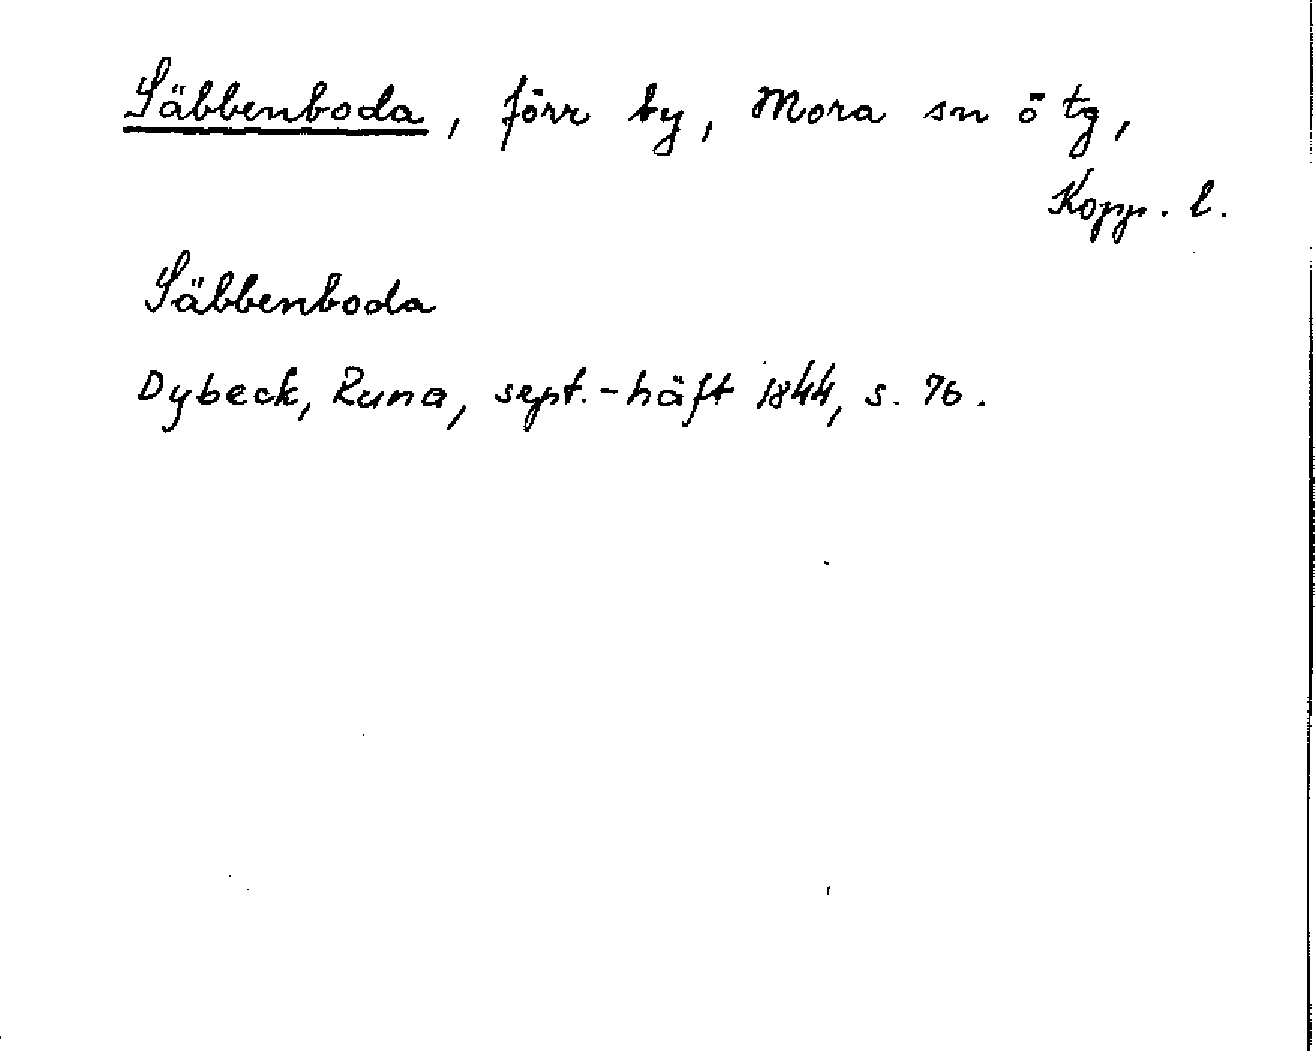 Säbbenboda, förr by, Mora sn ö tg,
Kopp. l.
Säbbenboda
Dybeck, Runa, sept.-häft 1844, s. 76.